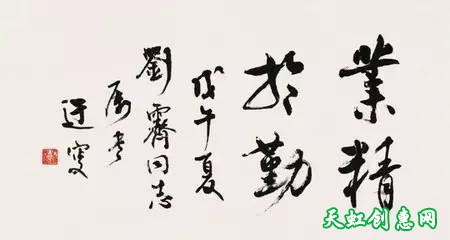 業精
於勤
戊午夏
劉霽同志
属書
天虹创惠网